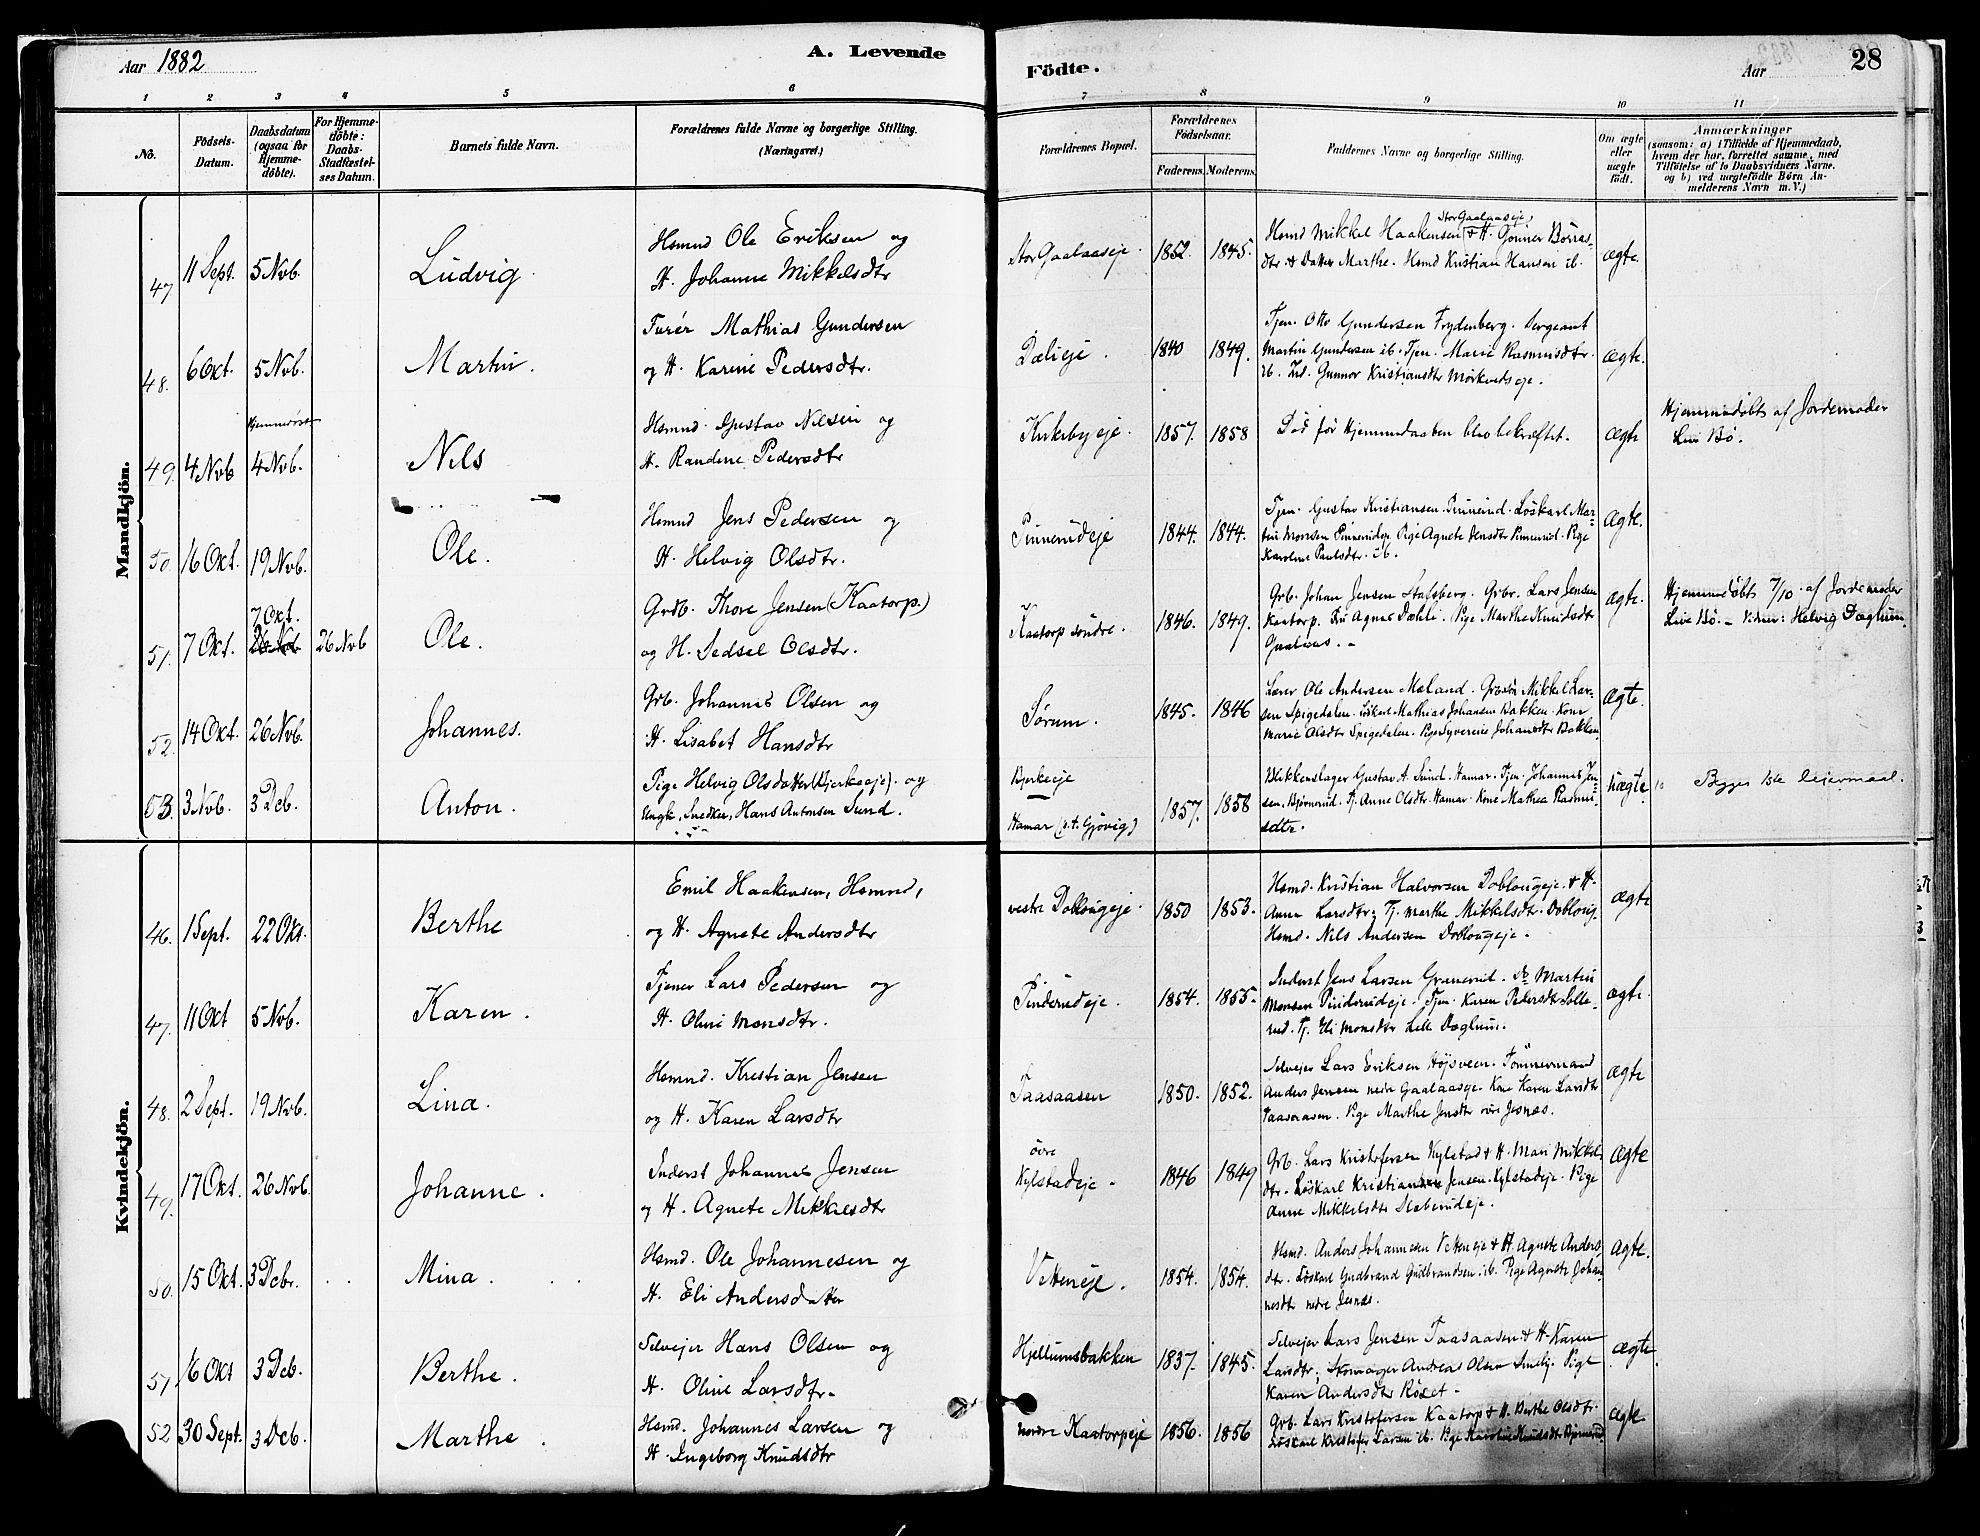 Aar 1882
A. Levende
Födte.
Aar
28
1 2 3 4 5 6 7 8 9 10 11
No.
Födsels-
Datum.
Daabsdatum
(ogsaa for
Hjemme-
döbte).
For Hjemme-
döbte:
Daabs-
Stadfæstel-
ses Datum.
Barnets fulde Navn.
Forældrenes fulde Navne og borgerlige Stilling.
(Næringsvei.)
Forældrenes Bopæl.
Forældrenes
Födselsaar.
Faderens. Moderens.
Faddernes Navne og borgerlige Stilling.
Om ægte
eller
uægte
födt.
Anmærkninger
(saasom: a) i Tilfælde af Hjemmedaab,
hvem der har forrettet samme, med
Tilföielse af to Daabsvidners Navne.
og b) ved uægtefödte Börn An-
melderens Navn m.V.)
Mandkjön.
47 11 Sept. 5 Nvb. Ludvig.
Hsmnd Ole Eriksen og
H. Johanne Mikkelsdtr
Stor Gaalaaseje. 1852. 1845.
Stor Gaalaaseje,
Hsmd Mikkel Haakensen & H. Gonner Börres-
dtr. & Datter Marthe. Hsmd Kristian Hansen ib.
ægte.
48. 6 Okt. 5 Nvb. Martin.
Furér Mathias Gundersen
og H. Karine Pedersdtr.
Dælieje. 1840 1849.
Tjen. Otto Gundersen Frydenberg. Sergeant
Martin Gundersen ib. Tjen. Marie Rasmusdtr.
ib. Ind. Gunnor Kristiansdtr Mörkvedseje.
ægte.
49. 4 Nvb Hjemmedöbt
4 Nvb. Nils
Hsmnd. Gustav Nilsen og
H. Randine Pedersdtr
Kirkebyeje. 1857. 1858
Död för Hjemmedaaben blev bekræftet.
ægte
Hjemmedöbt af Jordemoder
Live Bø.
50. 16 Okt. 19 Nvb. Ole.
Hsmnd Jens Pedersen og
H. Helvig Olsdtr.
Pinnerudeje 1844. 1844.
Tjen. Gustav Kristiansen Pinnerud. Löskarl Mar-
tin Monsen Pinnerudeje Pige Agnete Jensdtr Pinnerud. Pige
Karoline Paulsdtr. ib.
ægte.
51. 7 Okt. 7 Okt.
26 Nvb 26 Nvb Ole.
Grdb. Thore Jensen (Kaatorp.)
og H. Sedsel Olsdtr.
Kaatorp söndre. 1846. 1849.
Grb. Johan Jensen Stafsberg. Grbr. Lars Jensen
Kaatorp. Fru Agnes Dæhli. Pige Marthe Knudsdtr
Gaalaas.
ægte.
Hjemmedöbt 7/10 af Jordemoder
Live Bø. – Vidner: Helvig Dæglum.
52. 14 Okt. 26 Nvb. Johannes.
Grb. Johannes Olsen og
H. Lisabet Hansdtr
Sörum. 1845. 1846
Lærer Ole Andersen Mæland. Grbsön Mikkel Lar-
sen Spigedalen. Löskarl Mathias Johansen Bakken. Kone
Marie Olsdtr Spigedalen. Pige Syverine Johansdtr Bakken
Ægte.
53. 3 Nvb. 3 Dcb. Anton.
Pige Helvig Olsdatter (Bjerkeeje). og
Ungk., Snedker, Hans Antonsen Sund.
Bjerkeeje
Hamar (p.t. Gjövig) 1857. 1858
Blikkenslager Gustav A. Sund. Hamar. Tjen. Johannes Jen-
sen, Björnerud. Tj. Anne Olsdtr Hamar. Kone Mathea Rasmu-
sdtr.
uægte.
Begges 1ste leiermaal.
Kvindekjön.
46. 1 Sept. 22 Okt. Berthe
Emil Haakensen, Hsmnd,
og H. Agnete Andersdtr
vestre Doblougeje. 1850 1853.
Hsmd. Kristian Halvorsen Doblougeje. & H.
Anne Larsdtr; Tj. Marthe Mikkelsdtr. Dobloug.
Hsmd. Nils Andersen Doblougeje.
ægte
47. 11 Okt 5 Nvb. Karen.
Tjener Lars Pedersen og
H. Oline Monsdtr.
Pinderudeje. 1854. 1855.
Inderst Jens Larsen Granerud. Do Martin
Monsen Pinderudeje. Tjen. Karen Pedersdtr Solle-
rud. Tj. Eli Monsdtr Lille Dæglum.
ægte.
48. 2 Sept. 19 Nvb. Lina.
Hsmnd. Kristian Jensen
og H. Karen Larsdtr
Taasaasen 1850. 1852.
Selvejer Lars Eriksen Höjsveen. Tömmermand
Anders Jensen nedre Gaalaaseje. Kone Karen Larsdtr
Taasaasen. Pige Marthe Jensdtr övre Jesnæs.
ægte
49. 17 Okt. 26 Nvb. Johanne.
Inderst Johannes Jensen
og H. Agnete Mikkelsdtr
övre
Kylstadeje. 1846 1849
Grb. Lars Kristofersen Kylstad & H. Mari Mikkels
dtr. Löskarl Kristian Jensen. Kylstadeje. Pige
Anne Mikkelsdtr Sleberudeje.
ægte
50. 15 Okt. 3 Dcbr. Mina.
Hsmd. Ole Johannesen og
H. Eli Andersdatter
Vetteneje. 1854. 1854.
Hsmd. Anders Johannesen Vetteneje & H. Agnete Anders-
dtr. Löskarl Gudbrand Gudbrandsen. ib. Pige Agnete Johan-
nesdtr nedre Jesnæs.
ægte.
51 16 Okt 3 Dcb. Berthe.
Selvejer Hans Olsen og
H. Oline Larsdtr.
Hjellumsbakken 1837. 1845.
Selvejer Lars Jensen Taasaasen & H. Karen
Larsdtr; Skomager Andreas Olsen Smeby. Pige
Karen Andersdtr Röset.
ægte.
52 30 Sept. 3 Dcb. Marthe.
Hsmd. Johannes Larsen og
H. Ingeborg Knudsdtr
nordre Kaatorpeje 1856. 1856
Grb. Lars Kristofersen Kaatorp & H. Berthe Olsdtr.
Löskarl Kristofer Larsen ib. Pige Karoline Knudsdtr Björnerud
ægte